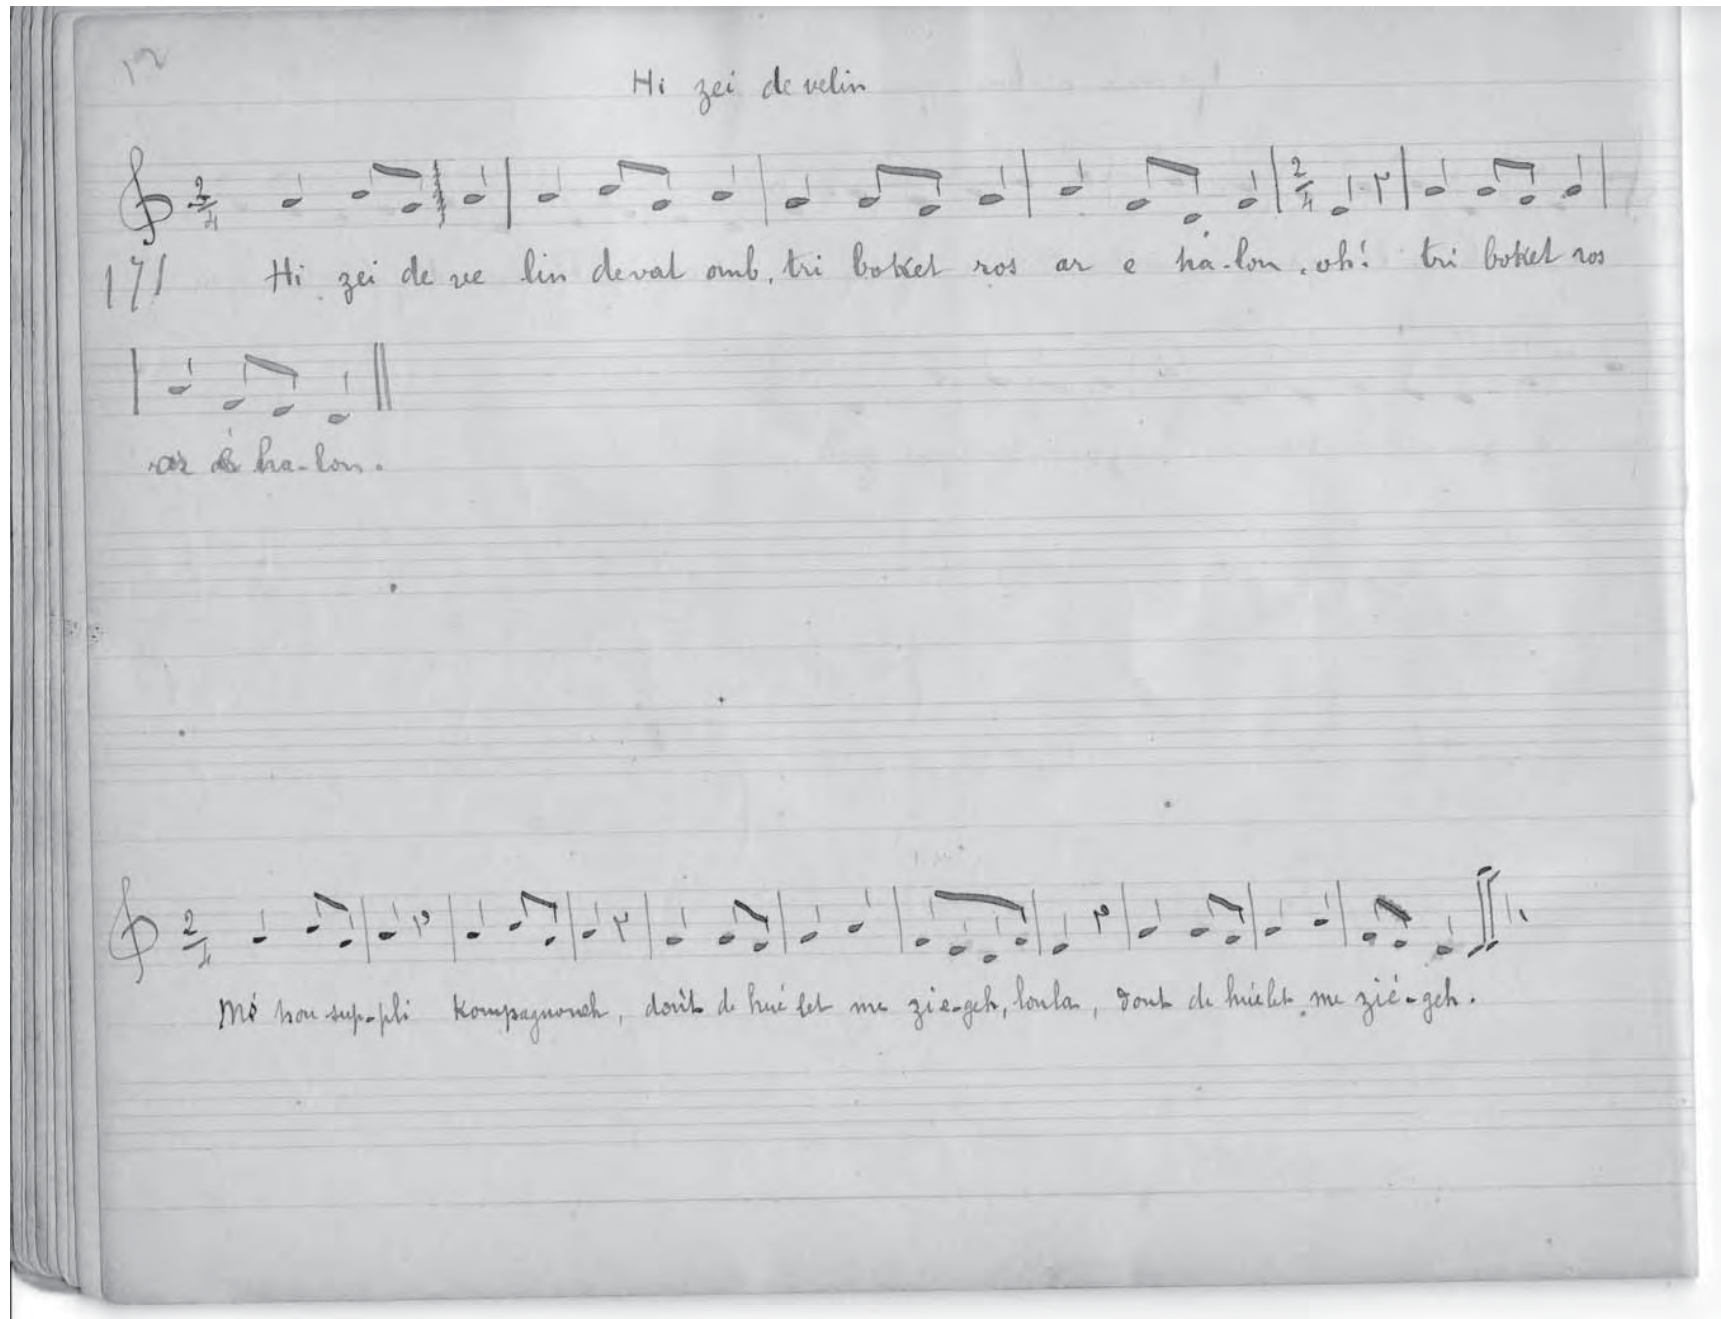 12
Hi zei de velin
2/4 2/4
171 Hi zei de ve lin deval omb, tri boket ros ar e ha-lon, oh! tri boket ros
ar é ha-lon.
2/4
Mé hou sup-pli kompagnoneh, de hué let me zie-geh, loula, de huélet me zié-geh.